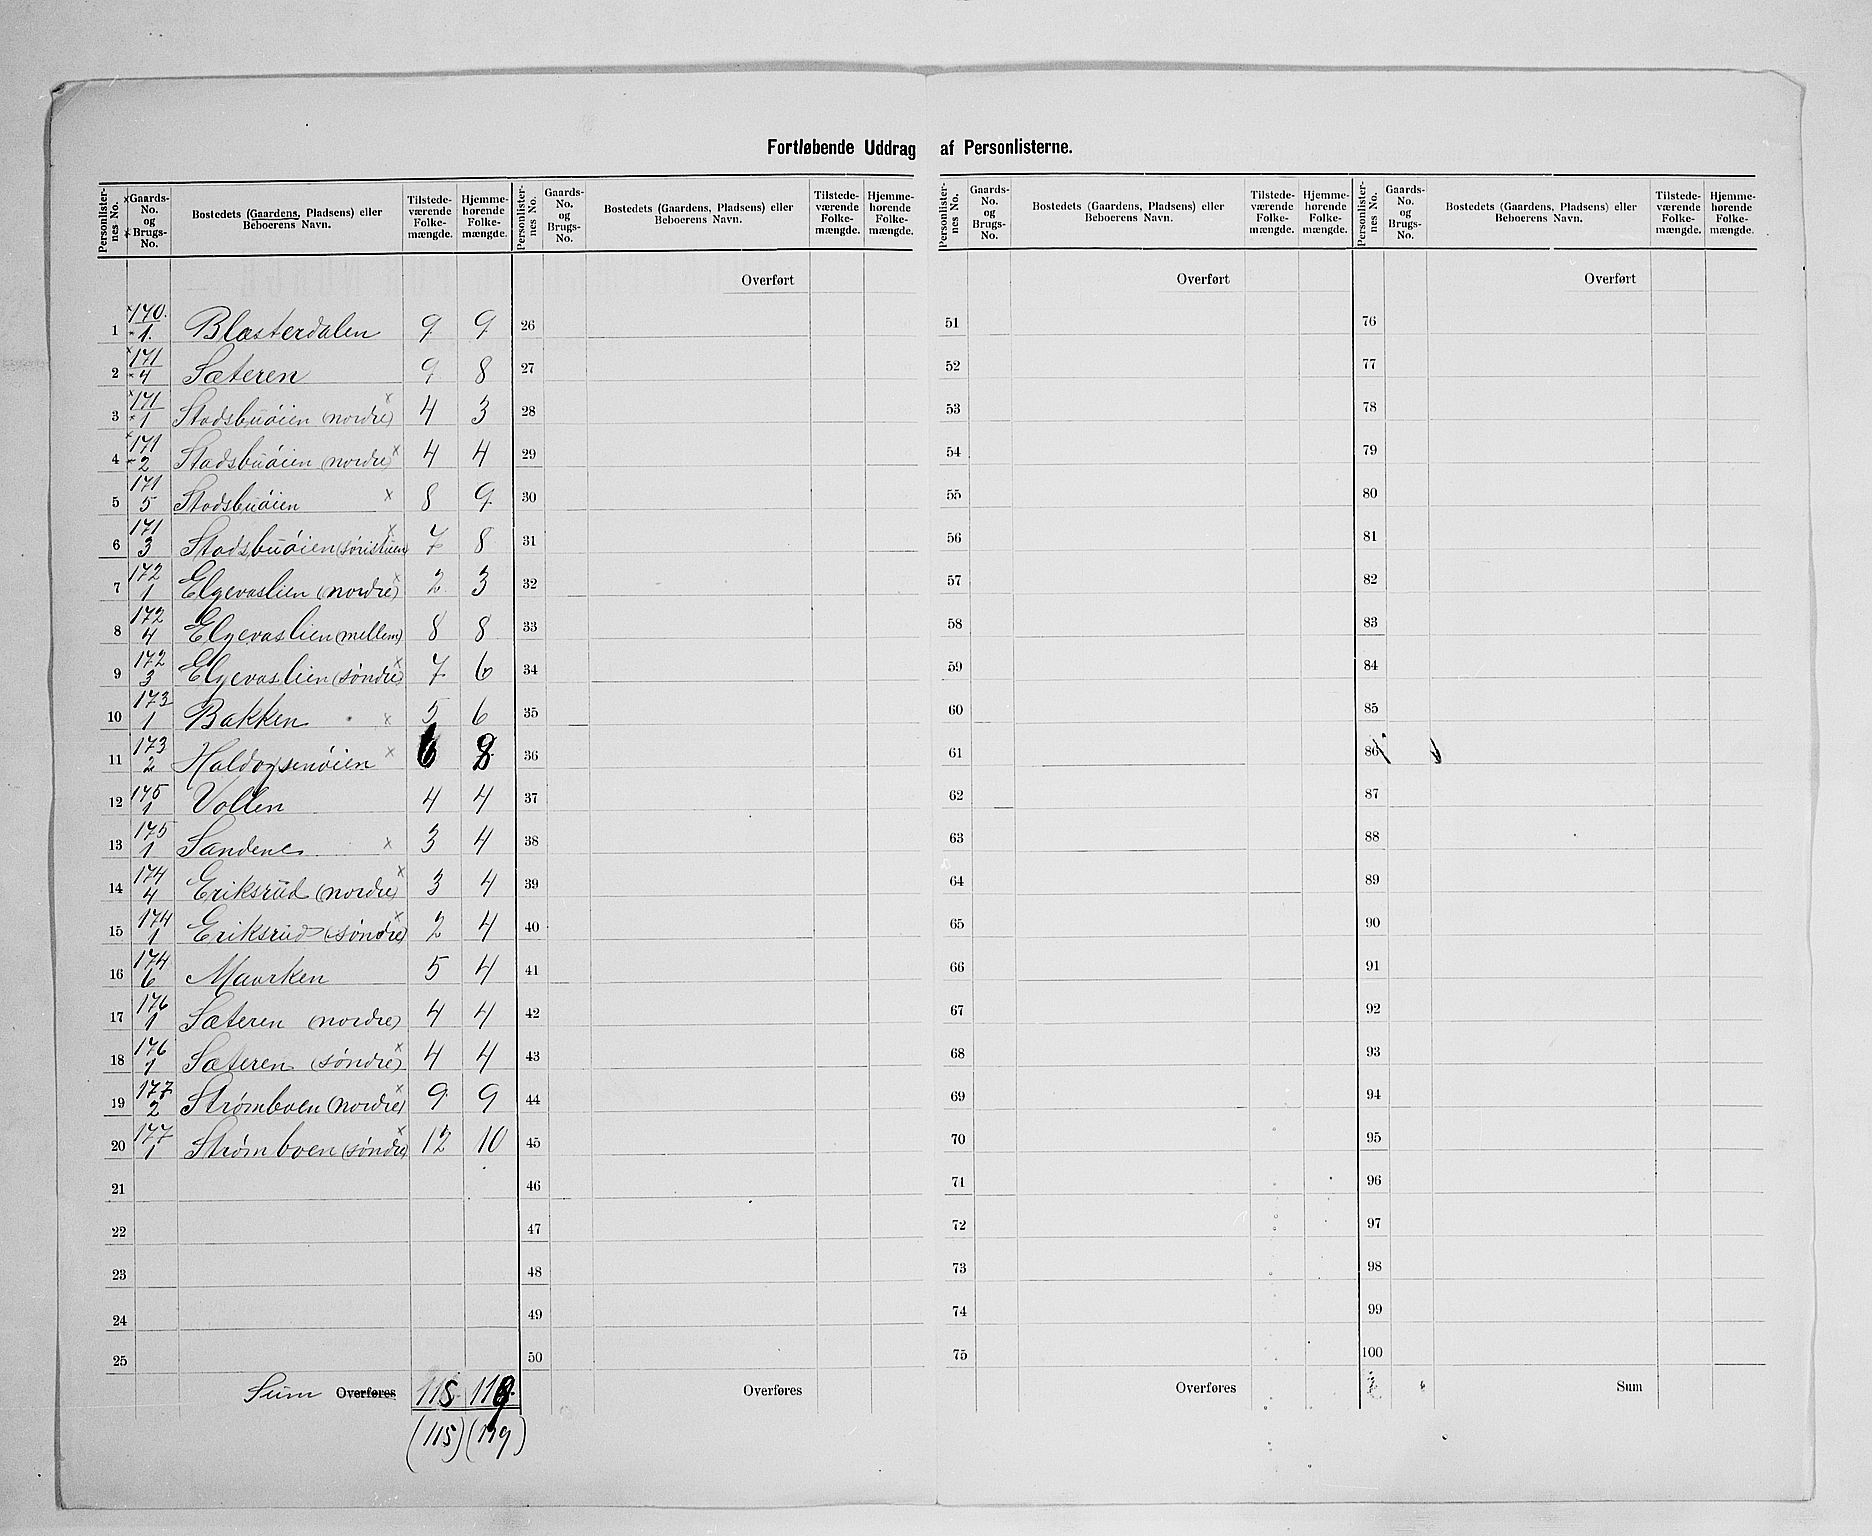 Fortløbende Uddrag af Personlisterne.
Personlister-nes No. | Gaards-No. og Brugs-No. | Bostedets (Gaardens, Pladsens) eller Beboerens Navn. | Tilstede-værende Folke-mængde. | Hjemme-hørende Folke-mængde.
1 170/1 Blæsterdalen 9 9
2 171/4 Sæteren 9 8
3 171/1 Stadsbuøien (nordre) 4 3
4 171/2 Stadsbuøien (nordre) 4 4
5 171/5 Stadsbuøien 8 9
6 171/3 Stadsbuøien 7 8
7 172/1 Elgevaslien (nordre) 2 3
8 172/4 Elgevaslien (mellem) 8 8
9 172/3 Elgevaslien (søndre) 7 6
10 173/1 Bakken 5 6
11 173/2 Haldogsenøien 6 8
12 175/1 Vollen 4 4
13 175/1 Sandene 3 4
14 174/4 Eriksrud (nordre) 3 4
15 174/1 Eriksrud (søndre) 2 4
16 174/6 Maarken 5 4
17 176/1 Sæteren (nordre) 4 4
18 176/1 Sæteren (søndre) 4 4
19 177/2 Strømboen (nordre) 9 9
20 177/1 Strømboen (søndre) 12 10
21
22
23
24
25
Sum Overføres 115 119
(115) (119)
Personlister-nes No. | Gaards-No. og Brugs-No. | Bostedets (Gaardens, Pladsens) eller Beboerens Navn. | Tilstede-værende Folke-mængde. | Hjemme-hørende Folke-mængde.
Overført
26
27
28
29
30
31
32
33
34
35
36
37
38
39
40
41
42
43
44
45
46
47
48
49
50
Overføres
Personlister-nes No. | Gaards-No. og Brugs-No. | Bostedets (Gaardens, Pladsens) eller Beboerens Navn. | Tilstede-værende Folke-mængde. | Hjemme-hørende Folke-mængde.
Overført
51
52
53
54
55
56
57
58
59
60
61
62
63
64
65
66
67
68
69
70
71
72
73
74
75
Overføres
Personlister-nes No. | Gaards-No. og Brugs-No. | Bostedets (Gaardens, Pladsens) eller Beboerens Navn. | Tilstede-værende Folke-mængde. | Hjemme-hørende Folke-mængde.
Overført
76
77
78
79
80
81
82
83
84
85
86
87
88
89
90
91
92
93
94
95
96
97
98
99
100
Sum